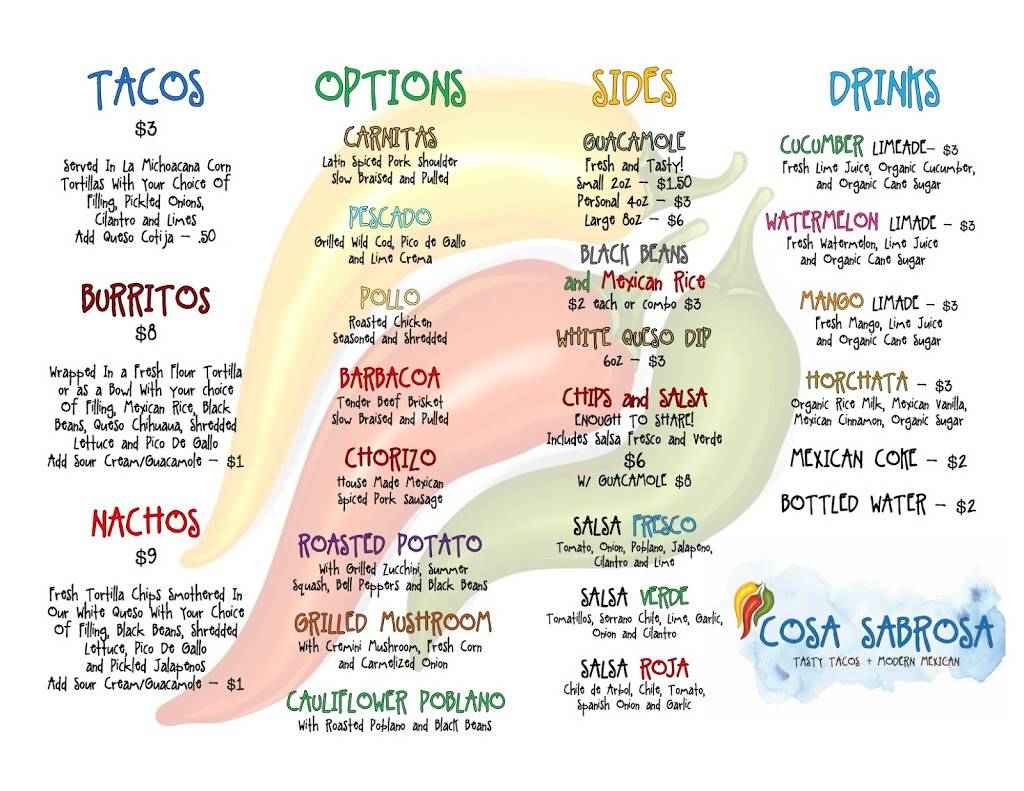 TACOS
$3
Served In La Michoacana Corn
Tortillas With Your Choice Of
Filling, Pickled Onions,
Cilantro and Limes
Add Queso Cotija - .50
BURRITOS
$8
Wrapped In a Fresh Flour Tortilla
or as a Bowl With Your choice
Of Filling, Mexican Rice, Black
Beans, Queso Chihuaua, Shredded
Lettuce and Pico De Gallo
Add Sour Cream/Guacamole - $1
NACHOS
$9
Fresh Tortilla Chips Smothered In
Our White Queso With Your Choice
Of Filling, Black Beans, Shredded
Lettuce, Pico De Gallo
and Pickled Jalapenos
Add Sour Cream/Guacamole - $1
OPTIONS
CARNITAS
Latin Spiced Pork Shoulder
Slow Braised and Pulled
PESCADO
Grilled Wild Cod, Pico de Gallo
and Lime Crema
POLLO
Roasted Chicken
Seasoned and Shredded
BARBACOA
Tender Beef Brisket
Slow Braised and Pulled
CHORIZO
House Made Mexican
Spiced Pork Sausage
ROASTED POTATO
With Grilled Zucchini, Summer
Squash, Bell Peppers and Black Beans
GRILLED MUSHROOM
With Cremini Mushroom, Fresh Corn
and Carmelized Onion
CAULIFLOWER POBLANO
With Roasted Poblano and Black Beans
SIDES
GUACAMOLE
Fresh and Tasty!
Small 2oz - $1.50
Personal 4oz - $3
Large 8oz - $6
BLACK BEANS
and Mexican Rice
$2 each or combo $3
WHITE QUESO DIP
6oz - $3
CHIPS and SALSA
ENOUGH TO SHARE!
Includes Salsa Fresco and Verde
$6
W/ GUACAMOLE $8
SALSA FRESCO
Tomato, Onion, Poblano, Jalapeno,
Cilantro and Lime
SALSA VERDE
Tomatillos, Serrano Chile, Lime, Garlic,
Onion and Cilantro
SALSA ROJA
Chile de Arbol, Chile, Tomato,
Spanish Onion and Garlic
DRINKS
CUCUMBER LIMEADE- $3
Fresh Lime Juice, Organic Cucumber,
and Organic Cane Sugar
WATERMELON LIMADE - $3
Fresh Watermelon, Lime Juice
and Organic Cane Sugar
MANGO LIMADE - $3
Fresh Mango, Lime Juice
and Organic Cane Sugar
HORCHATA - $3
Organic Rice Milk, Mexican Vanilla,
Mexican Cinnamon, Organic Sugar
MEXICAN COKE - $2
BOTTLED WATER - $2
COSA SABROSA
TASTY TACOS + MODERN MEXICAN